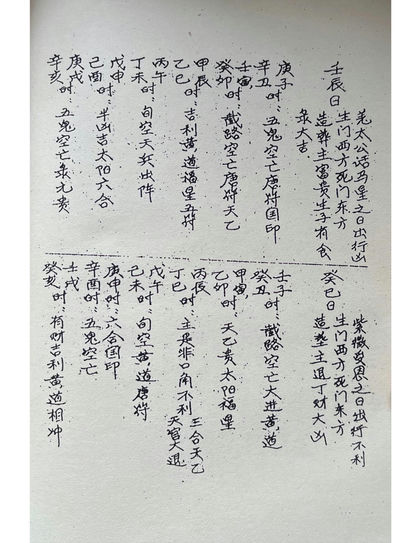 壬辰日
姜太公话马星之日出行凶
生门西方死门东方
造葬主富贵生子有食
禄大吉
庚子时：五鬼空亡唐符国印
辛丑
壬寅时：截路空亡唐符天乙
癸卯
甲辰时：吉利黄道福星五符
乙巳
丙午时：旬空天兵出阵
丁未
戊申时：半凶吉太阳六合
己酉
庚戌时：五鬼空亡禄元贵
辛亥
癸巳日
紫微受恩之日出行不利
生门西方死门东方
造葬主退丁财大凶
壬子时：截路空亡大进黄道
癸丑
甲寅时：天乙贵太阳福星
乙卯
丙辰时：主是非口角不利三合天乙
丁巳 天官大退
戊午时：旬空黄道唐符
己未
庚申时：六合国印
辛酉时：五鬼空亡
壬戌时：有财吉利黄道相冲
癸亥